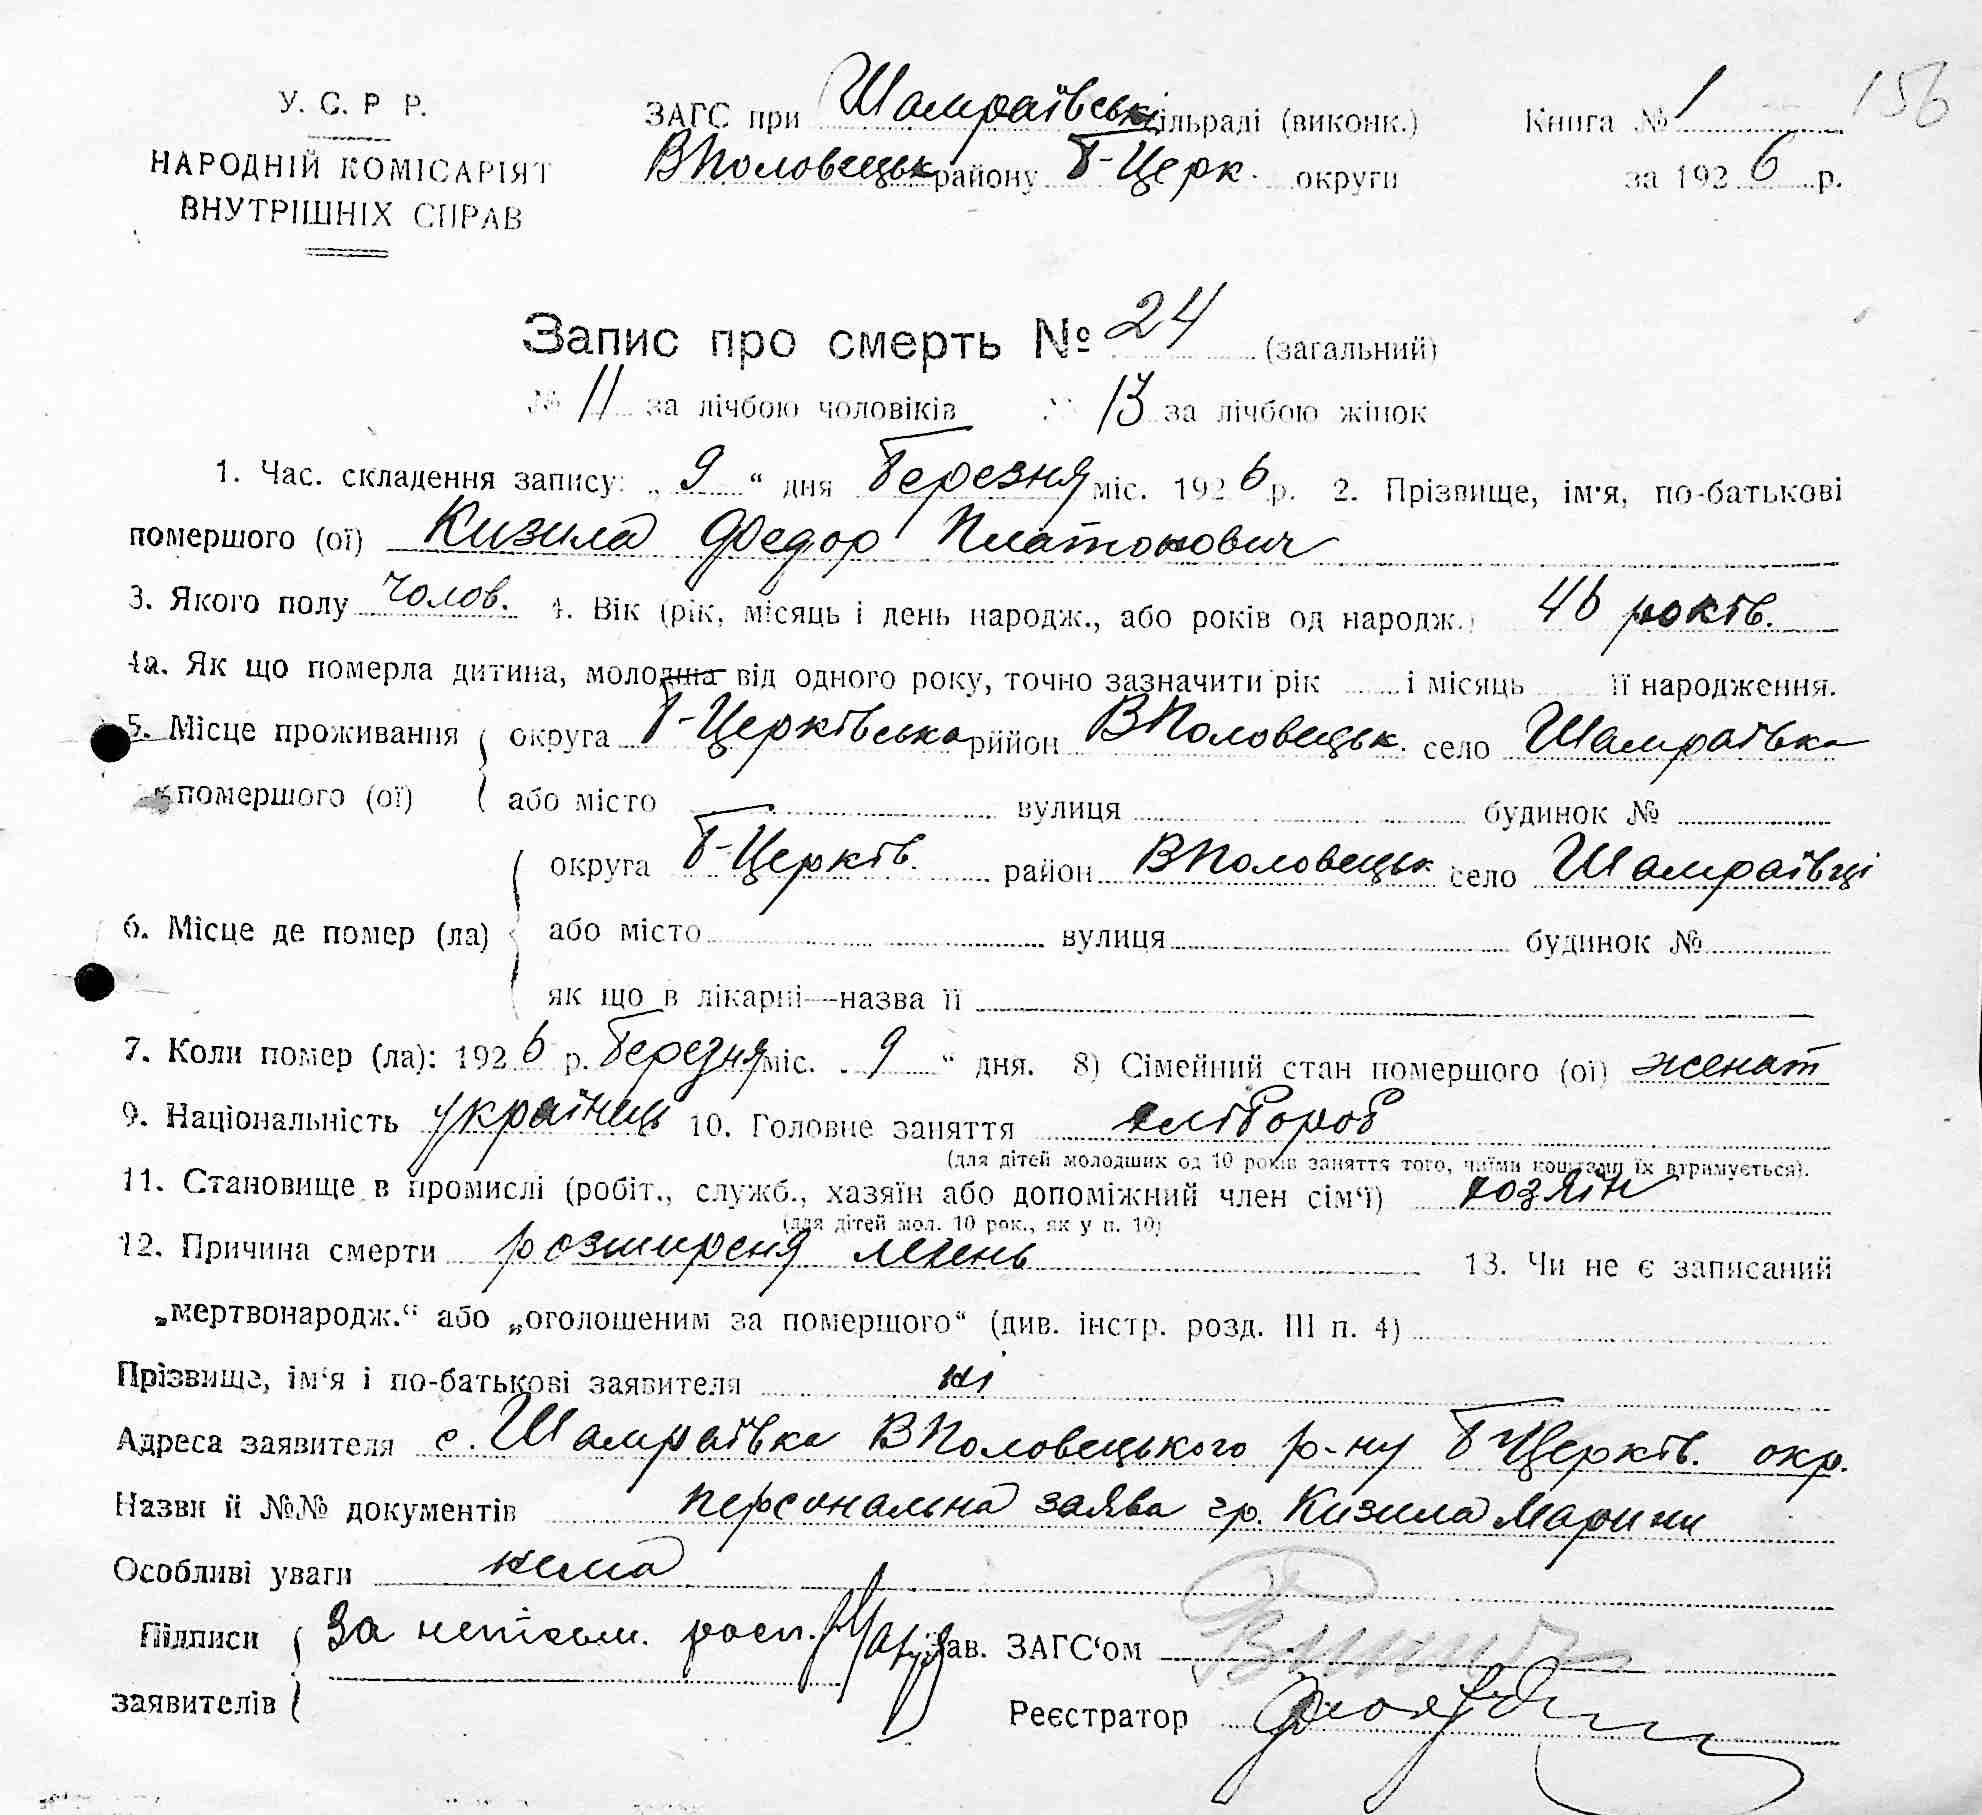 У. С. Р Р.
НАРОДНІЙ КОМІСАРІЯТ
ВНУТРІШНІХ СПРАВ
ЗАГС при Шамраївські сільраді (виконк.)
ВПоловецьк району Б-Церк. округи
Книга № 1
156
за 1926 р.
Запис про смерть № 24 (загальний)
№ 11 за лічбою чоловіків № 13 за лічбою жінок
1. Час. складення запису: „ 9 “ дня Березня міс. 1926 р. 2. Прізвище, ім'я, по-батькові
помершого (ої) Кизила Федор Платонович
3. Якого полу Чолов. 4. Вік (рік, місяць і день народж., або років од народж.) 46 років.
4а. Як що померла дитина, молодша від одного року, точно зазначити рік і місяць її народження.
5. Місце проживання округа Б-Церківська рийон ВПоловецьк. село Шамраївка
помершого (ої) або місто вулиця будинок №
округа Б-Церків. район ВПоловецьк село Шамраївці
6. Місце де помер (ла) або місто вулиця будинок №
як що в лікарні—назва її
7. Коли помер (ла): 1926 р. Березня міс. 9 “ дня. 8) Сімейний стан помершого (ої) женат
9. Національність українець 10. Головне заняття хлібороб
(для дітей молодших од 10 років заняття того, чиїми коштами їх втримується).
11. Становище в промислі (робіт., служб., хазяїн або допоміжний член сім'ї) хозяїн
(для дітей мол. 10 рок., як у п. 10)
12. Причина смерти розширеня легень 13. Чи не є записаний
„мертвонародж.“ або „оголошеним за помершого“ (див. інстр. розд. III п. 4)
Прізвище, ім'я і по-батькові заявителя ні
Адреса заявителя с. Шамраївка ВПоловецького р-ну Б-Церків. окр.
Назви й №№ документів персональна заява гр. Кизила Марини
Особливі уваги нема
Підписи За неписьм. росп. Зав. ЗАГС'ом
заявителів Реєстратор